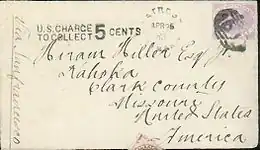 U.S. CHARGE
TO COLLECT 5 CENTS
APR 26
Via San Francisco
Hiram Miller Esq Jr.
Kahoka
Clark County
Missouri
United States
America